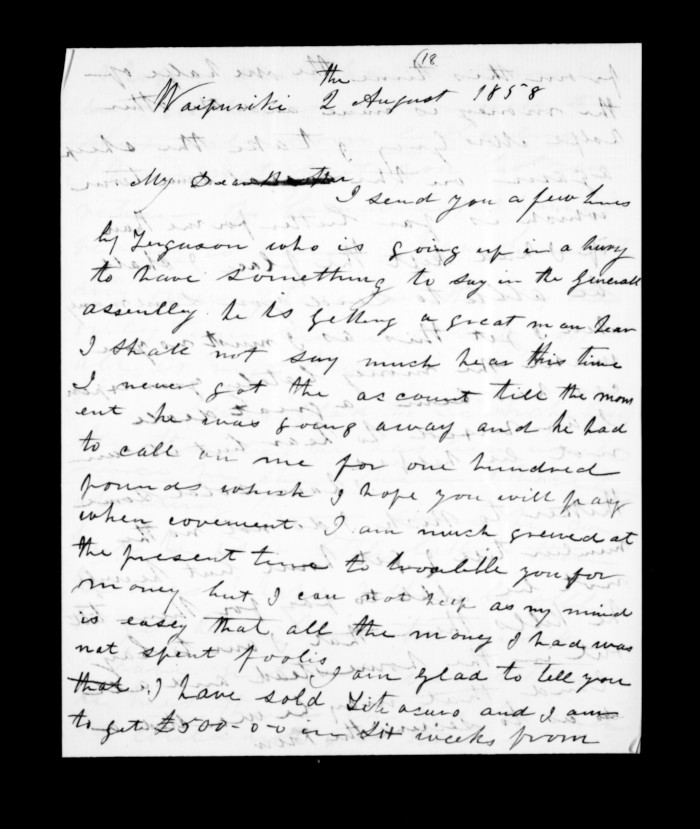 (18
the
Waipuriki 2 August 1858
My Dear Brother
I send you a few lines
by Ferguson who is going up in a hurry
to have something to say in the Generall
assembly he is getting a great man hear
I shall not say much hear this time
I never got the account till the mom
ent he was going away and he had
to call on me for one hundred
pounds which I hope you will pay
when covenient. I am much greived at
the present time to troubble you for
money but I can not help as my mind
is easey that all the money I had was
not spent foolis I am glad to tell you
that I have sold and I am
to get £500-0-0 in six weeks from